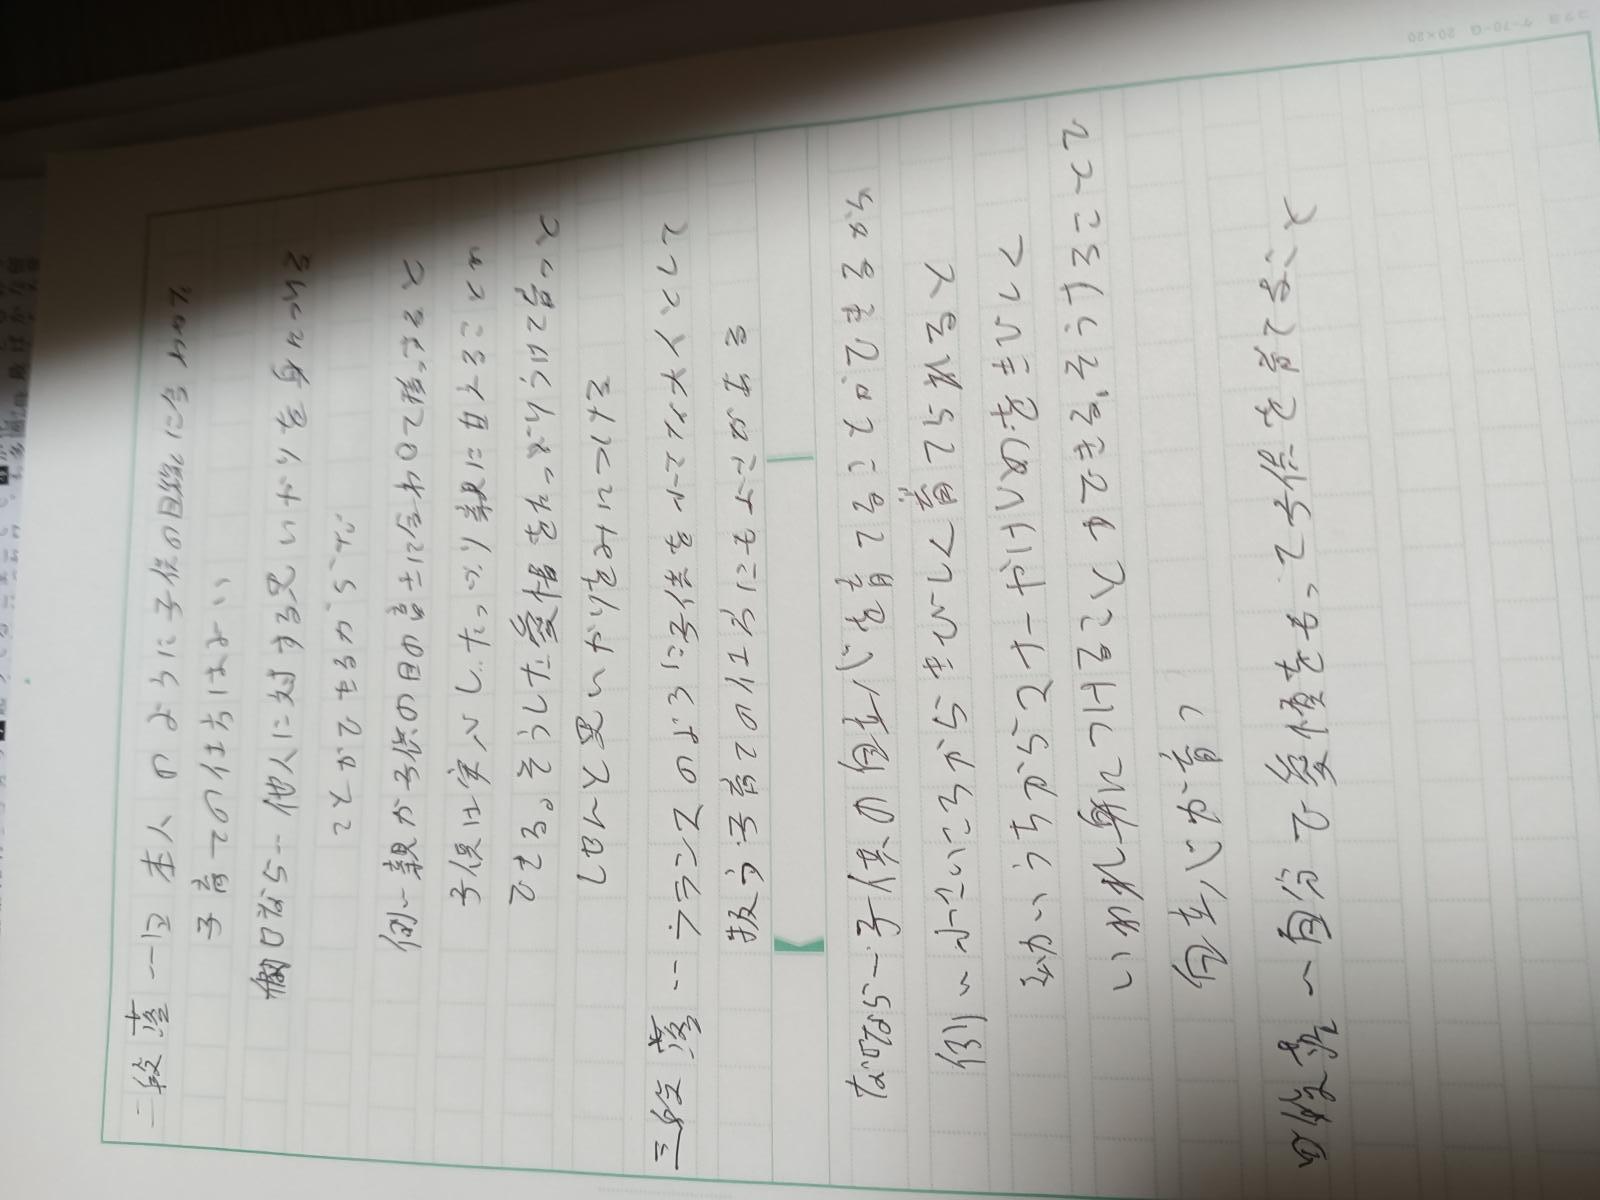 二段落 ―日本人のように子供の目線に合わせた
子育ての仕方はよい
なぜなら…他人に対する思いやりを身につける
ことができるからだ。
例…親が子供の目の高さに合わせて接すると
子供は安心したり、親に甘えることが
できる。そうした愛情をたっぷりうけて育つと
しぜんと思いやりをみにつける
三段落 ‥フランスのように子供を小さな大人として
扱う子育ての仕方にもよさがある
なぜなら―子供の自立心を育てることができるから
例) 小さいころからきびしく育てられると
幼いうちからマナーやけじめをきびしく
いわれ身につけることができる。そうすることで
自立心が育つ
四段落 ―自分で愛情をもって子供を育てること
コクヨ ケ-70-G 20×20